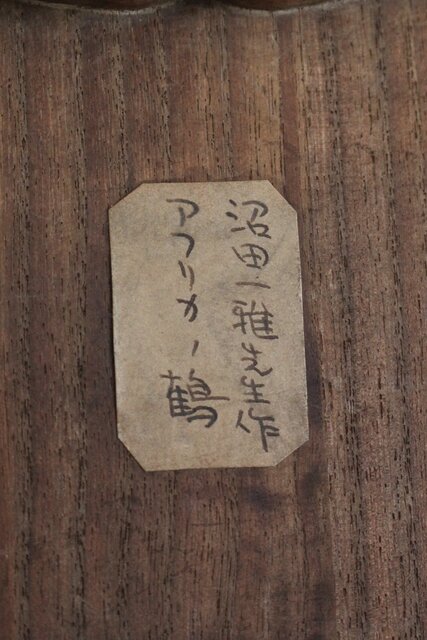 沼田一雅先生作
アフリカー鶴